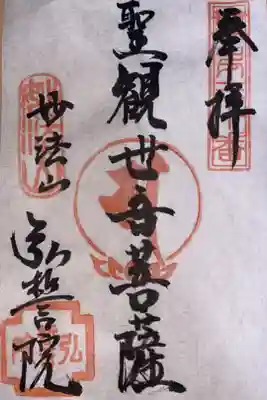 奉拝
聖観世音菩薩
妙法山
弘誓院
弘